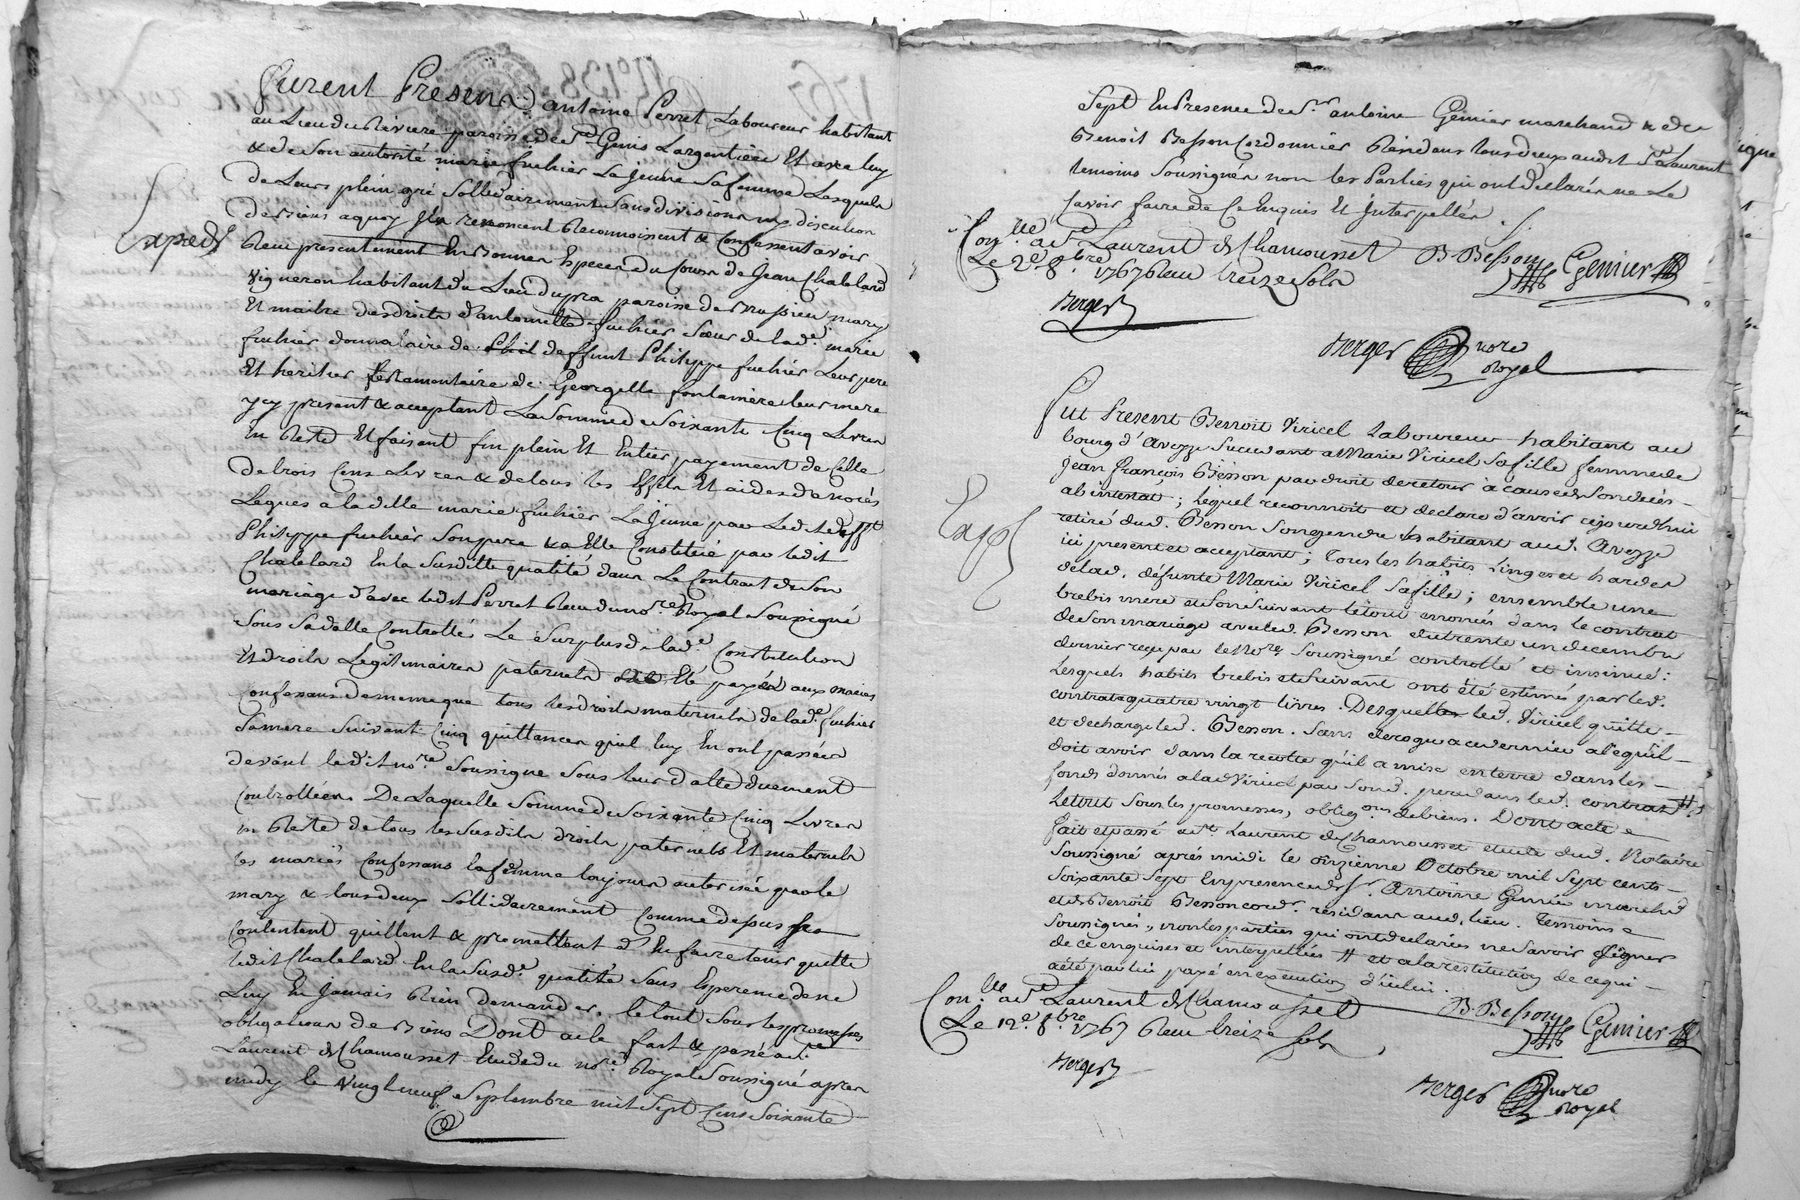 furent Presens antoine Perret Laboureur habitant
au Lieu du Riviere paroisse de St Genis Largentiere Et avec luy
& de Son autorité marie fuchier La jeune Sa femme Lesquels
de Leurs plein gré Sollidairement Sans division ny discution
de Biens aquoy Ils renoncent Reconnoissent & Confessent avoir
Reçu presentement En Bonnes Especes du Cours de Jean Chalelard
Vigneron habitant du Lieu du pra paroisse de Brussieu mary
Et maitre des droits d'antoinette fuchier Sœur de lade marie
fuchier donnataire de deffunt Philippe fuchier Leur pere
Et heritier testamentaire de Georgette fontainere leur mere
ycy present & acceptant La Somme de Soixante Cinq Livres
en Reste Et faisant fin plein Et Entier payement de Celle
de trois Cens Livres & de tous les Effets Et aides de noces
Legués a ladite marie fuchier La jeune par Ledit defft
Philippe fuchier Son pere & a Elle Constitué par ledit
Chalelard En la Susditte qualité dans Le Contrat de Son
mariage d'avec ledit Perret Reçu du nore Royal Soussigné
Sous Sa datte Controllé Le Surplus de lade Constitution
Et droits Legitimaires paternels Eté payés aux mariés
Confessans de meme que tous les droits maternels de lade fuchier
Sa mere Suivant Cinq quittances qu'il luy En ont passées
devant ledit nore Soussigné Sous leur datte duement
Controllées De Laquelle Somme de Soixante Cinq Livres
en Reste de tous les Susdits droits paternels Et maternels
les mariés Confessans la femme toujours autorisée par le
mary & tous deux Sollidairement Comme dessus se
Contentent quittent & promettent d'En faire tenir quitte
ledit Chalelard En la Susde qualité Sans Esperence de ne
Luy En Jamais Rien demander. le tout Sous les promesses
obligations de Biens Dont acte fait & passé a St
Laurent de Chamousset Etude du nore Royal Soussigné apres
midy le Vingt neuf Septembre mil Sept Cens Soixante
Exped
Sept En Presence de Sr antoine Genier marchand & de
Benoit Besson Cordonnier Residans tous deux audit St Laurent
temoins Soussignés non les Parties qui ont declarés ne Le
Savoir faire de Ce Enquis Et Interpellés ./.
Conlle a St Laurent de Chamousset
Le 2e 8bre 1767 Reçu treize Sols
Berger
B. Besson
Genier
Berger nore
Royal
Fut Present Benoit Viricel Laboureur habitant au
bourg d'Aveyze Succedant a Marie Viricel Sa fille femme de
Jean François Besson par droit de retour à cause de Son decés
ab intestat; lequel reconnoit et declare d'avoir cejourd'hui
retiré dud. Besson Son gendre habitant aud. Aveyze
ici present et acceptant; tous les habits Linges et hardes
de lad. defunte Marie Viricel Sa fille; ensemble une
brebis mere et Son Suivant le tout enoncés dans le contrat
de Son mariage avec led. Besson du trente un decembre
dernier reçu par le Nore Soussigné controllé et insinué:
Lesquels habits brebis et Suivant ont été estimés par led.
contrat a quatre vingt livres. Desquelles led. Viricel quitte
et decharge led. Besson. Sans deroger a ce dernier a ce qu'il
doit avoir dans la recolte qu'il a mise en terre dans les
fonds donnés a lad Viricel par Sond. pere dans led. contrat #
Le tout Sous les promesses, obligons de biens. Dont acte
fait et passé a St Laurent de Chamousset etude dud. Notaire
Soussigné aprés midi le onzieme Octobre mil Sept cents
Soixante Sept En presence de Sr. Antoine Genier marchd
et de Benoit Besson cordr. residans aud. lieu. Temoins
Soussignés, non les parties qui ont declarées ne Savoir Signer
de ce enquises et interpellées # et a la restitution de ce qui
a été par lui payé en execution d'icelui.
Exp
Conlle a St Laurent de Chamousset
Le 12e 8bre 1767 Reçu treize Sols
Berger
B. Besson
Genier
Berger nore
Royal